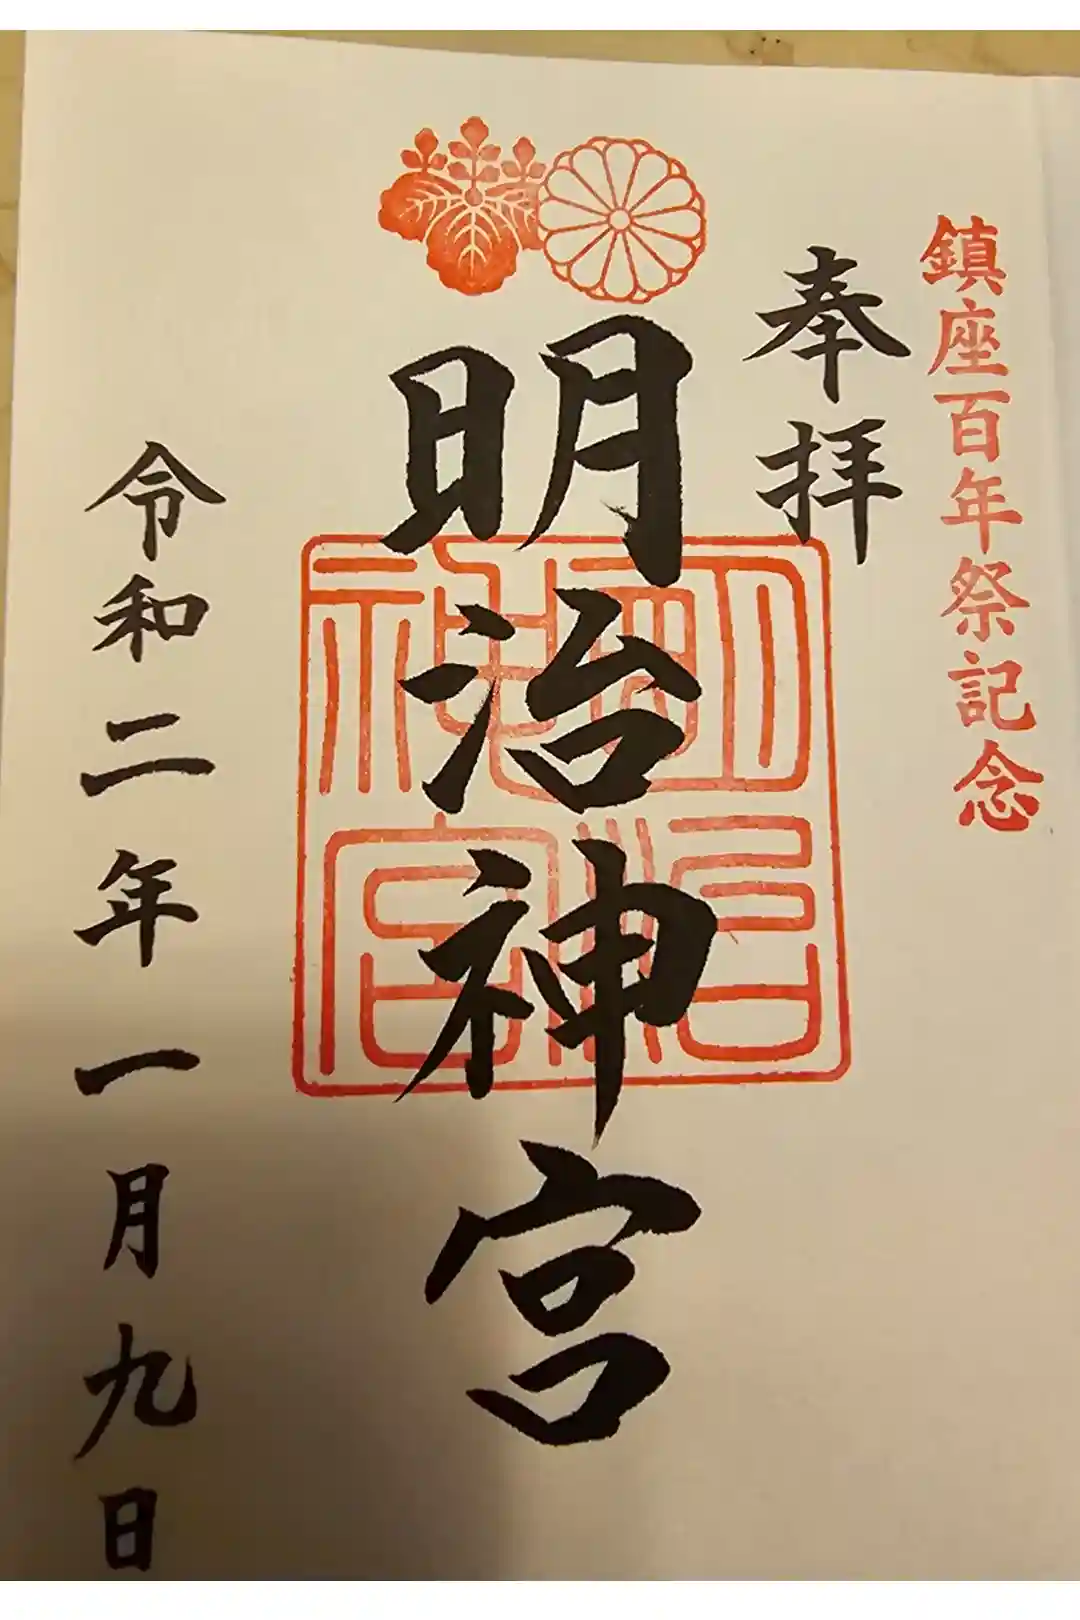 鎮座百年祭記念
奉拝
明治神宮
明治神宮
令和二年一月九日